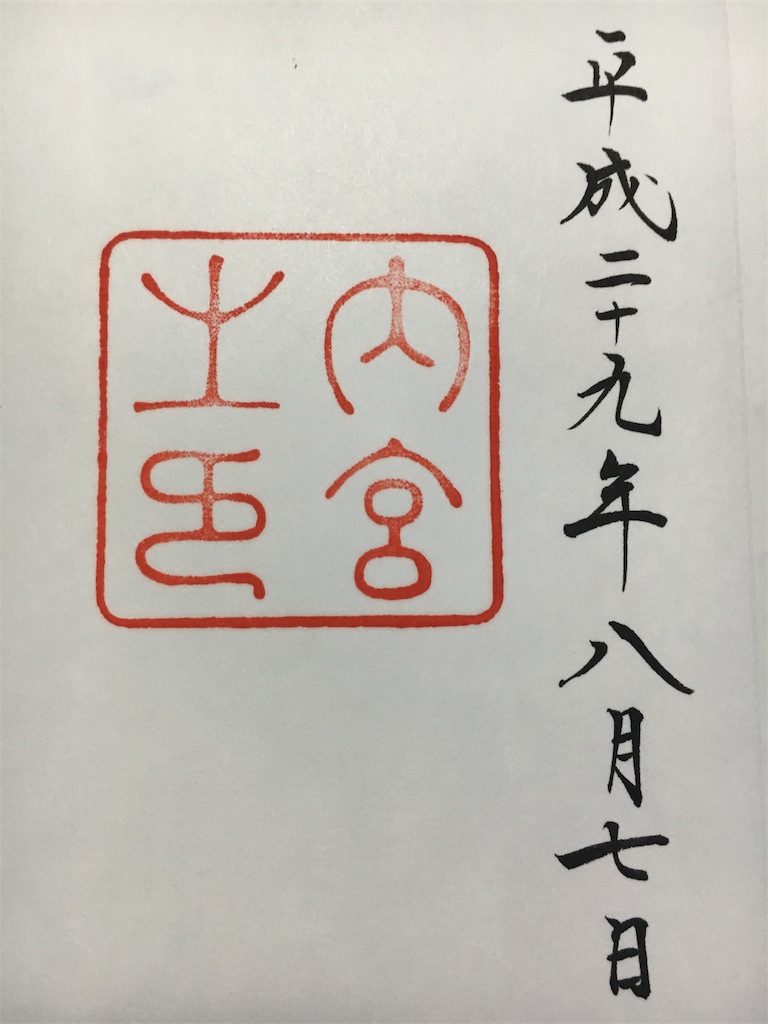 平成二十九年八月七日
内宮
之印